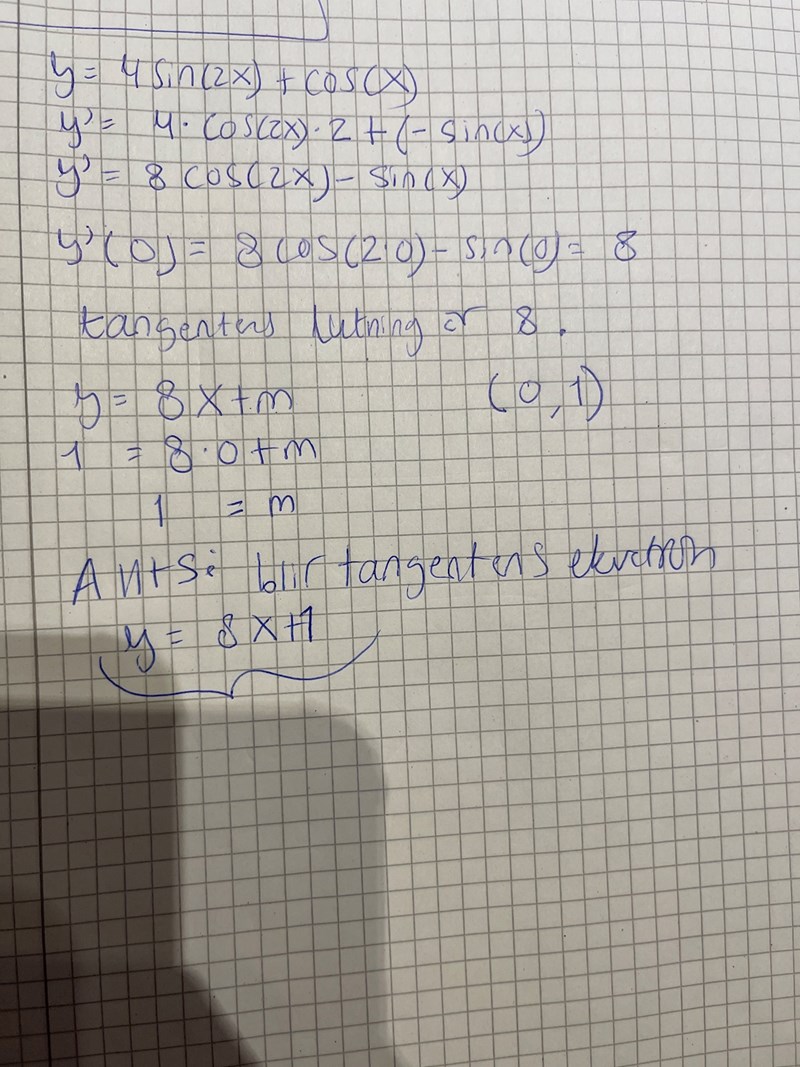 y = 4 sin(2x) + cos(x)
y' = 4 · cos(2x) · 2 + (- sin(x))
y' = 8 cos(2x) - sin(x)
y'(0) = 8 cos(2·0) - sin(0) = 8
tangentens lutning är 8.
y = 8x+m (0,1)
1 = 8·0+m
1 = m
blir tangentens
y = 8x+1